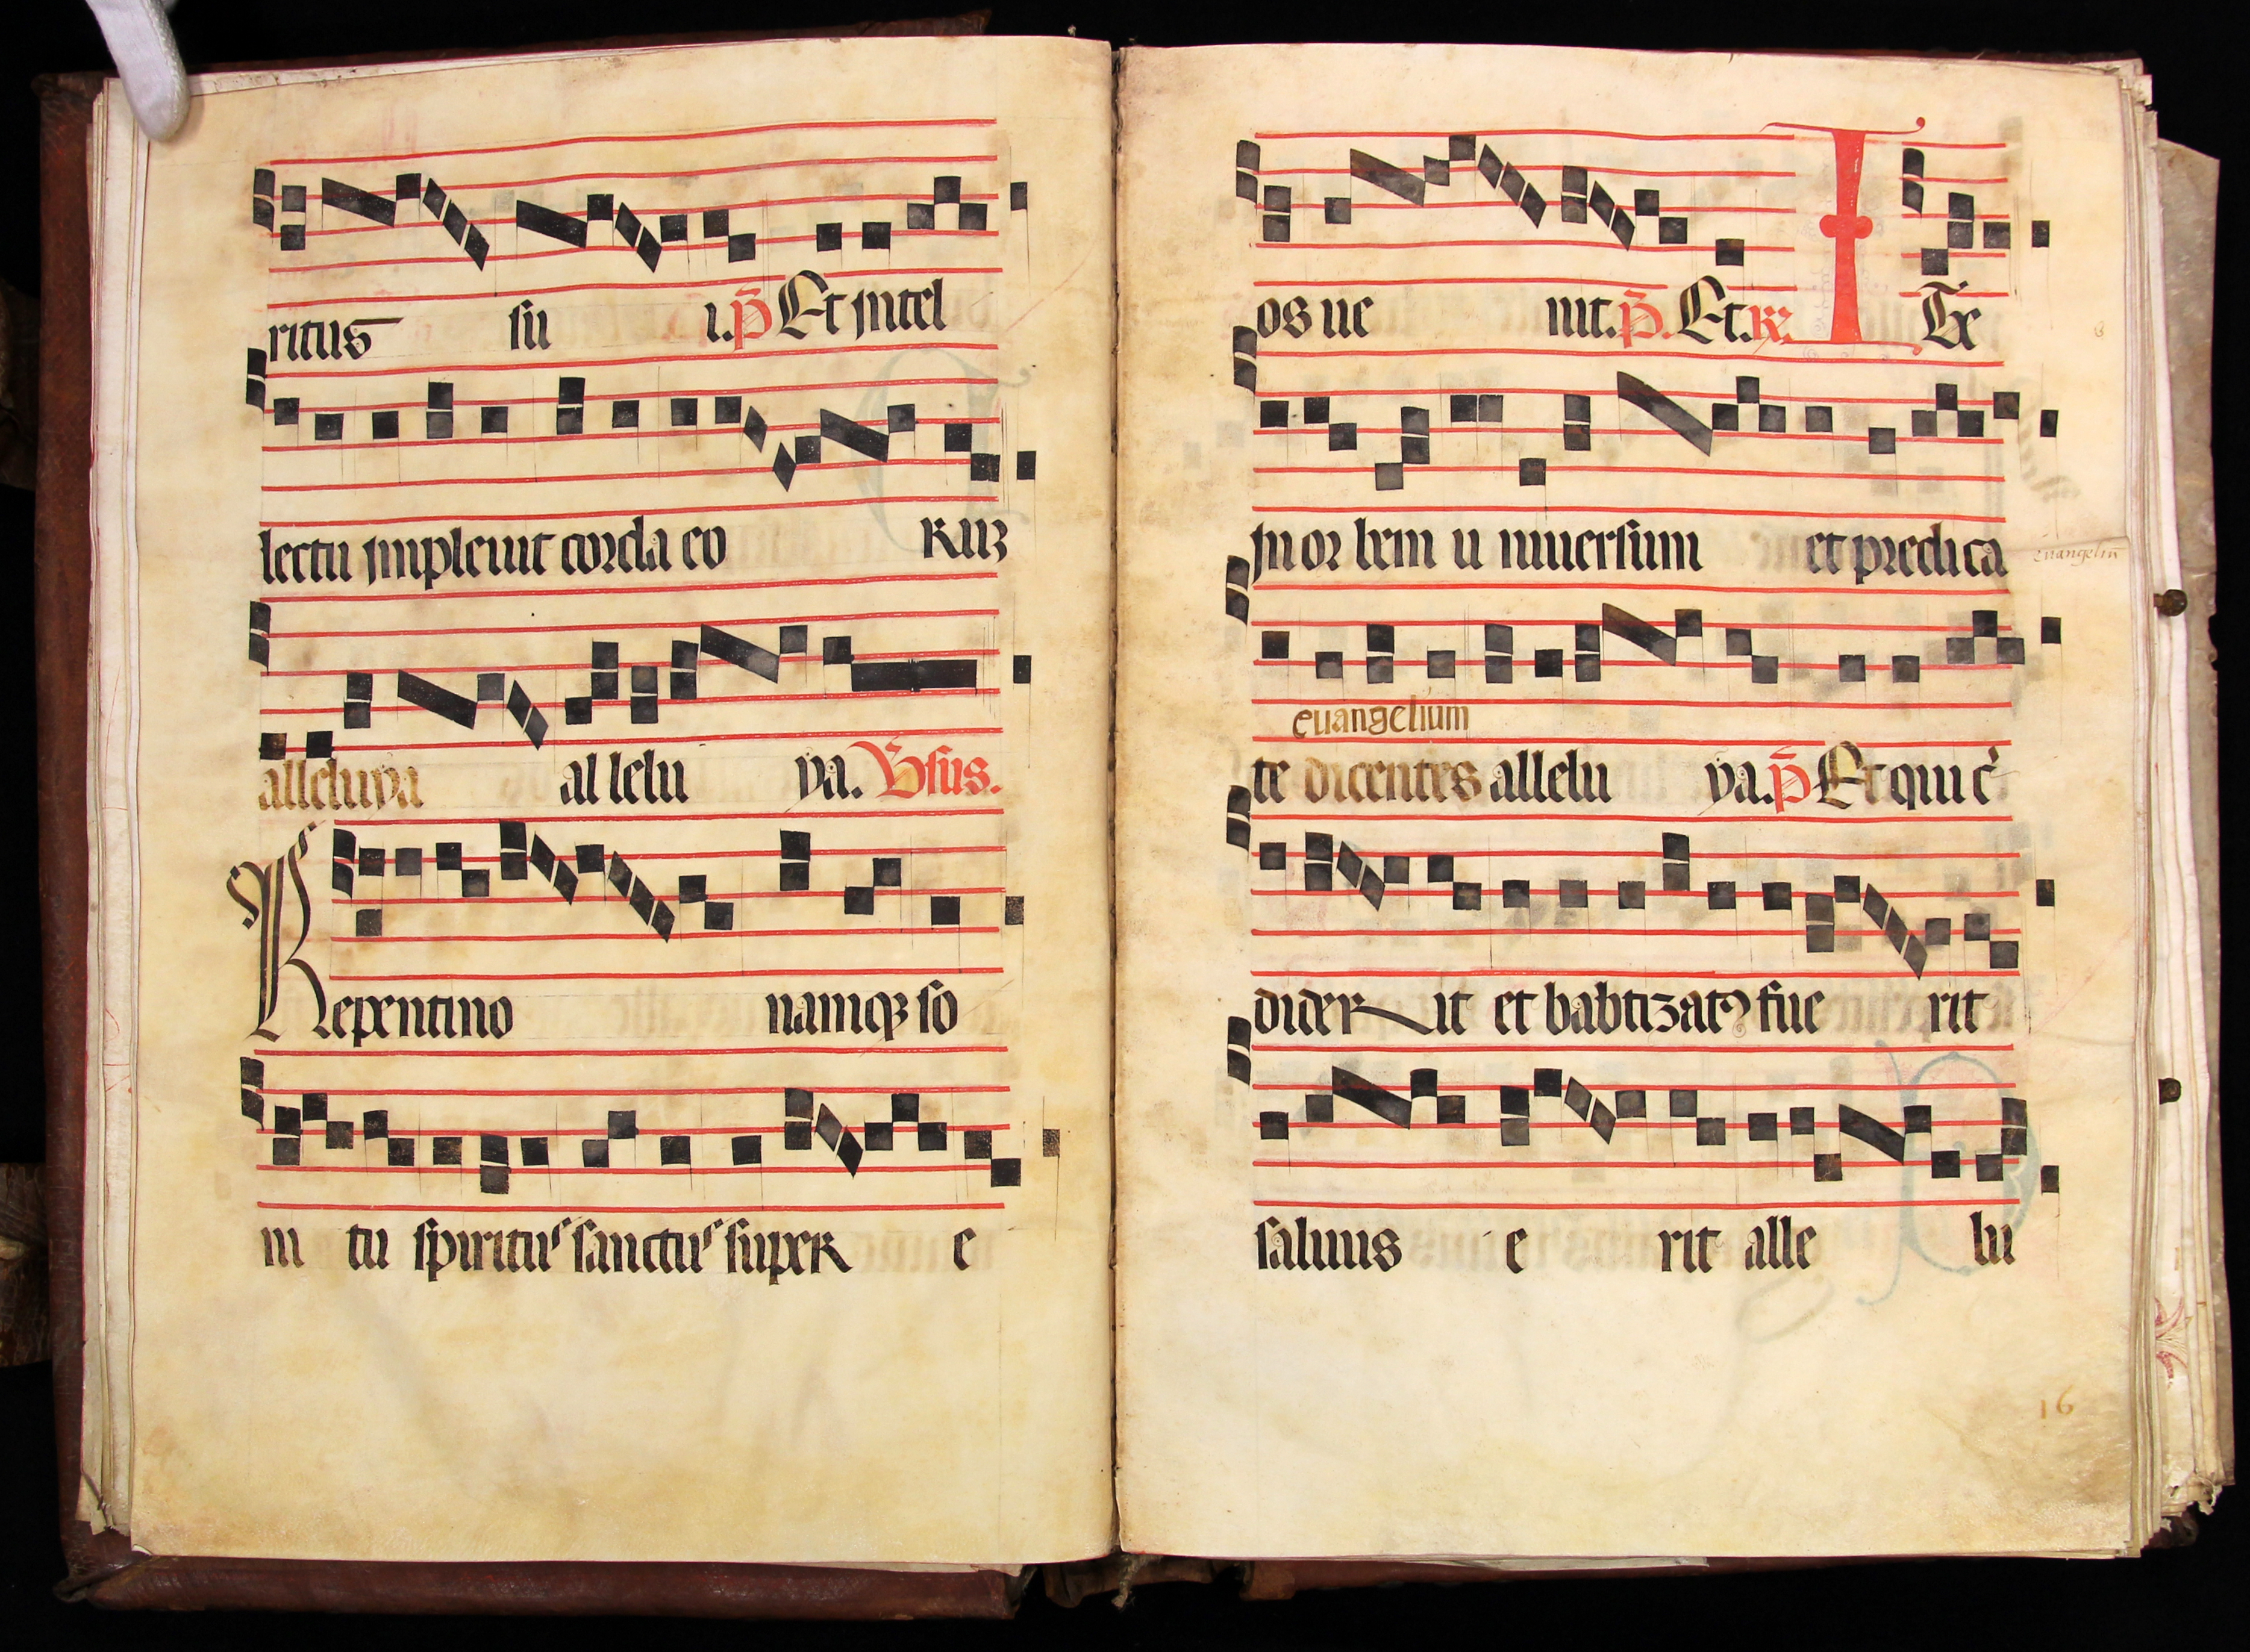 ritus su i. p̄ Et intel
lectu impleuit corda eo rum
alleluya al lelu ya. V̄sus.
Repentino namq; so
ni tu spiritus sanctus super e
os ue nit. p̄. Et. R̷. I Te
in or bem u niuersum et predica
euangeliū
euangelium
te dicentes allelu ya. p̄ Et qui c̄
dider it et babtizatꝰ fue rit
saluus e rit alle lu
16